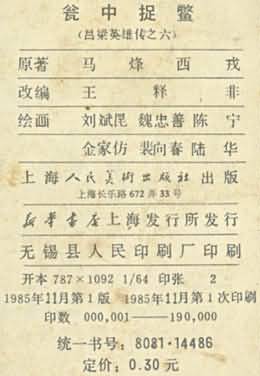 瓮中捉鳖
(吕梁英雄传之六)
原著 马烽 西戎
改编 王释非
绘画 刘斌昆 魏忠善 陈宁
金家仿 裴向春 陆华
上海人民美術出版社出版
上海长乐路672弄33号
新华書店上海发行所发行
无锡县人民印刷厂印刷
开本787×1092 1/64 印张 2
1985年11月第1版 1985年11月第1次印刷
印数 000,001——190,000
统一书号:8081·14486
定价:0.30元